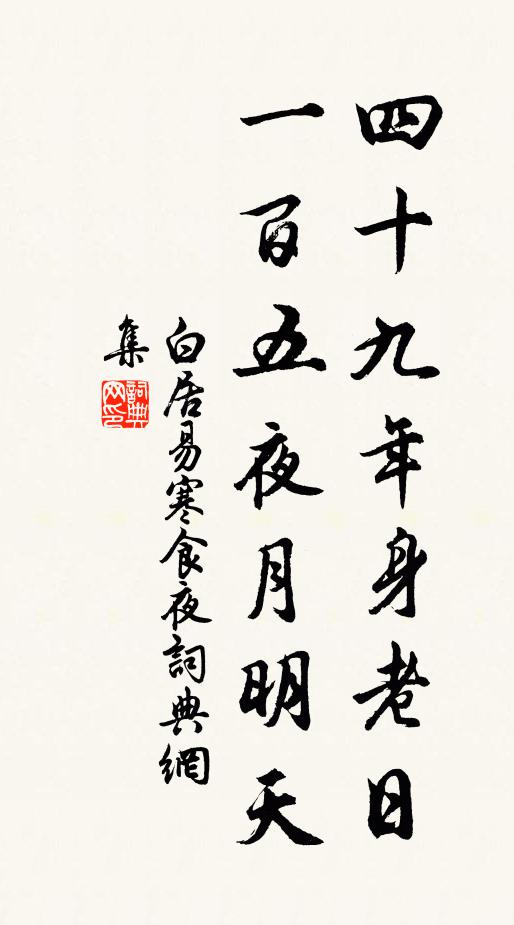 四十九年身老日
一百五夜月明天
白居易寒食夜詞典網
集
詞典
网印